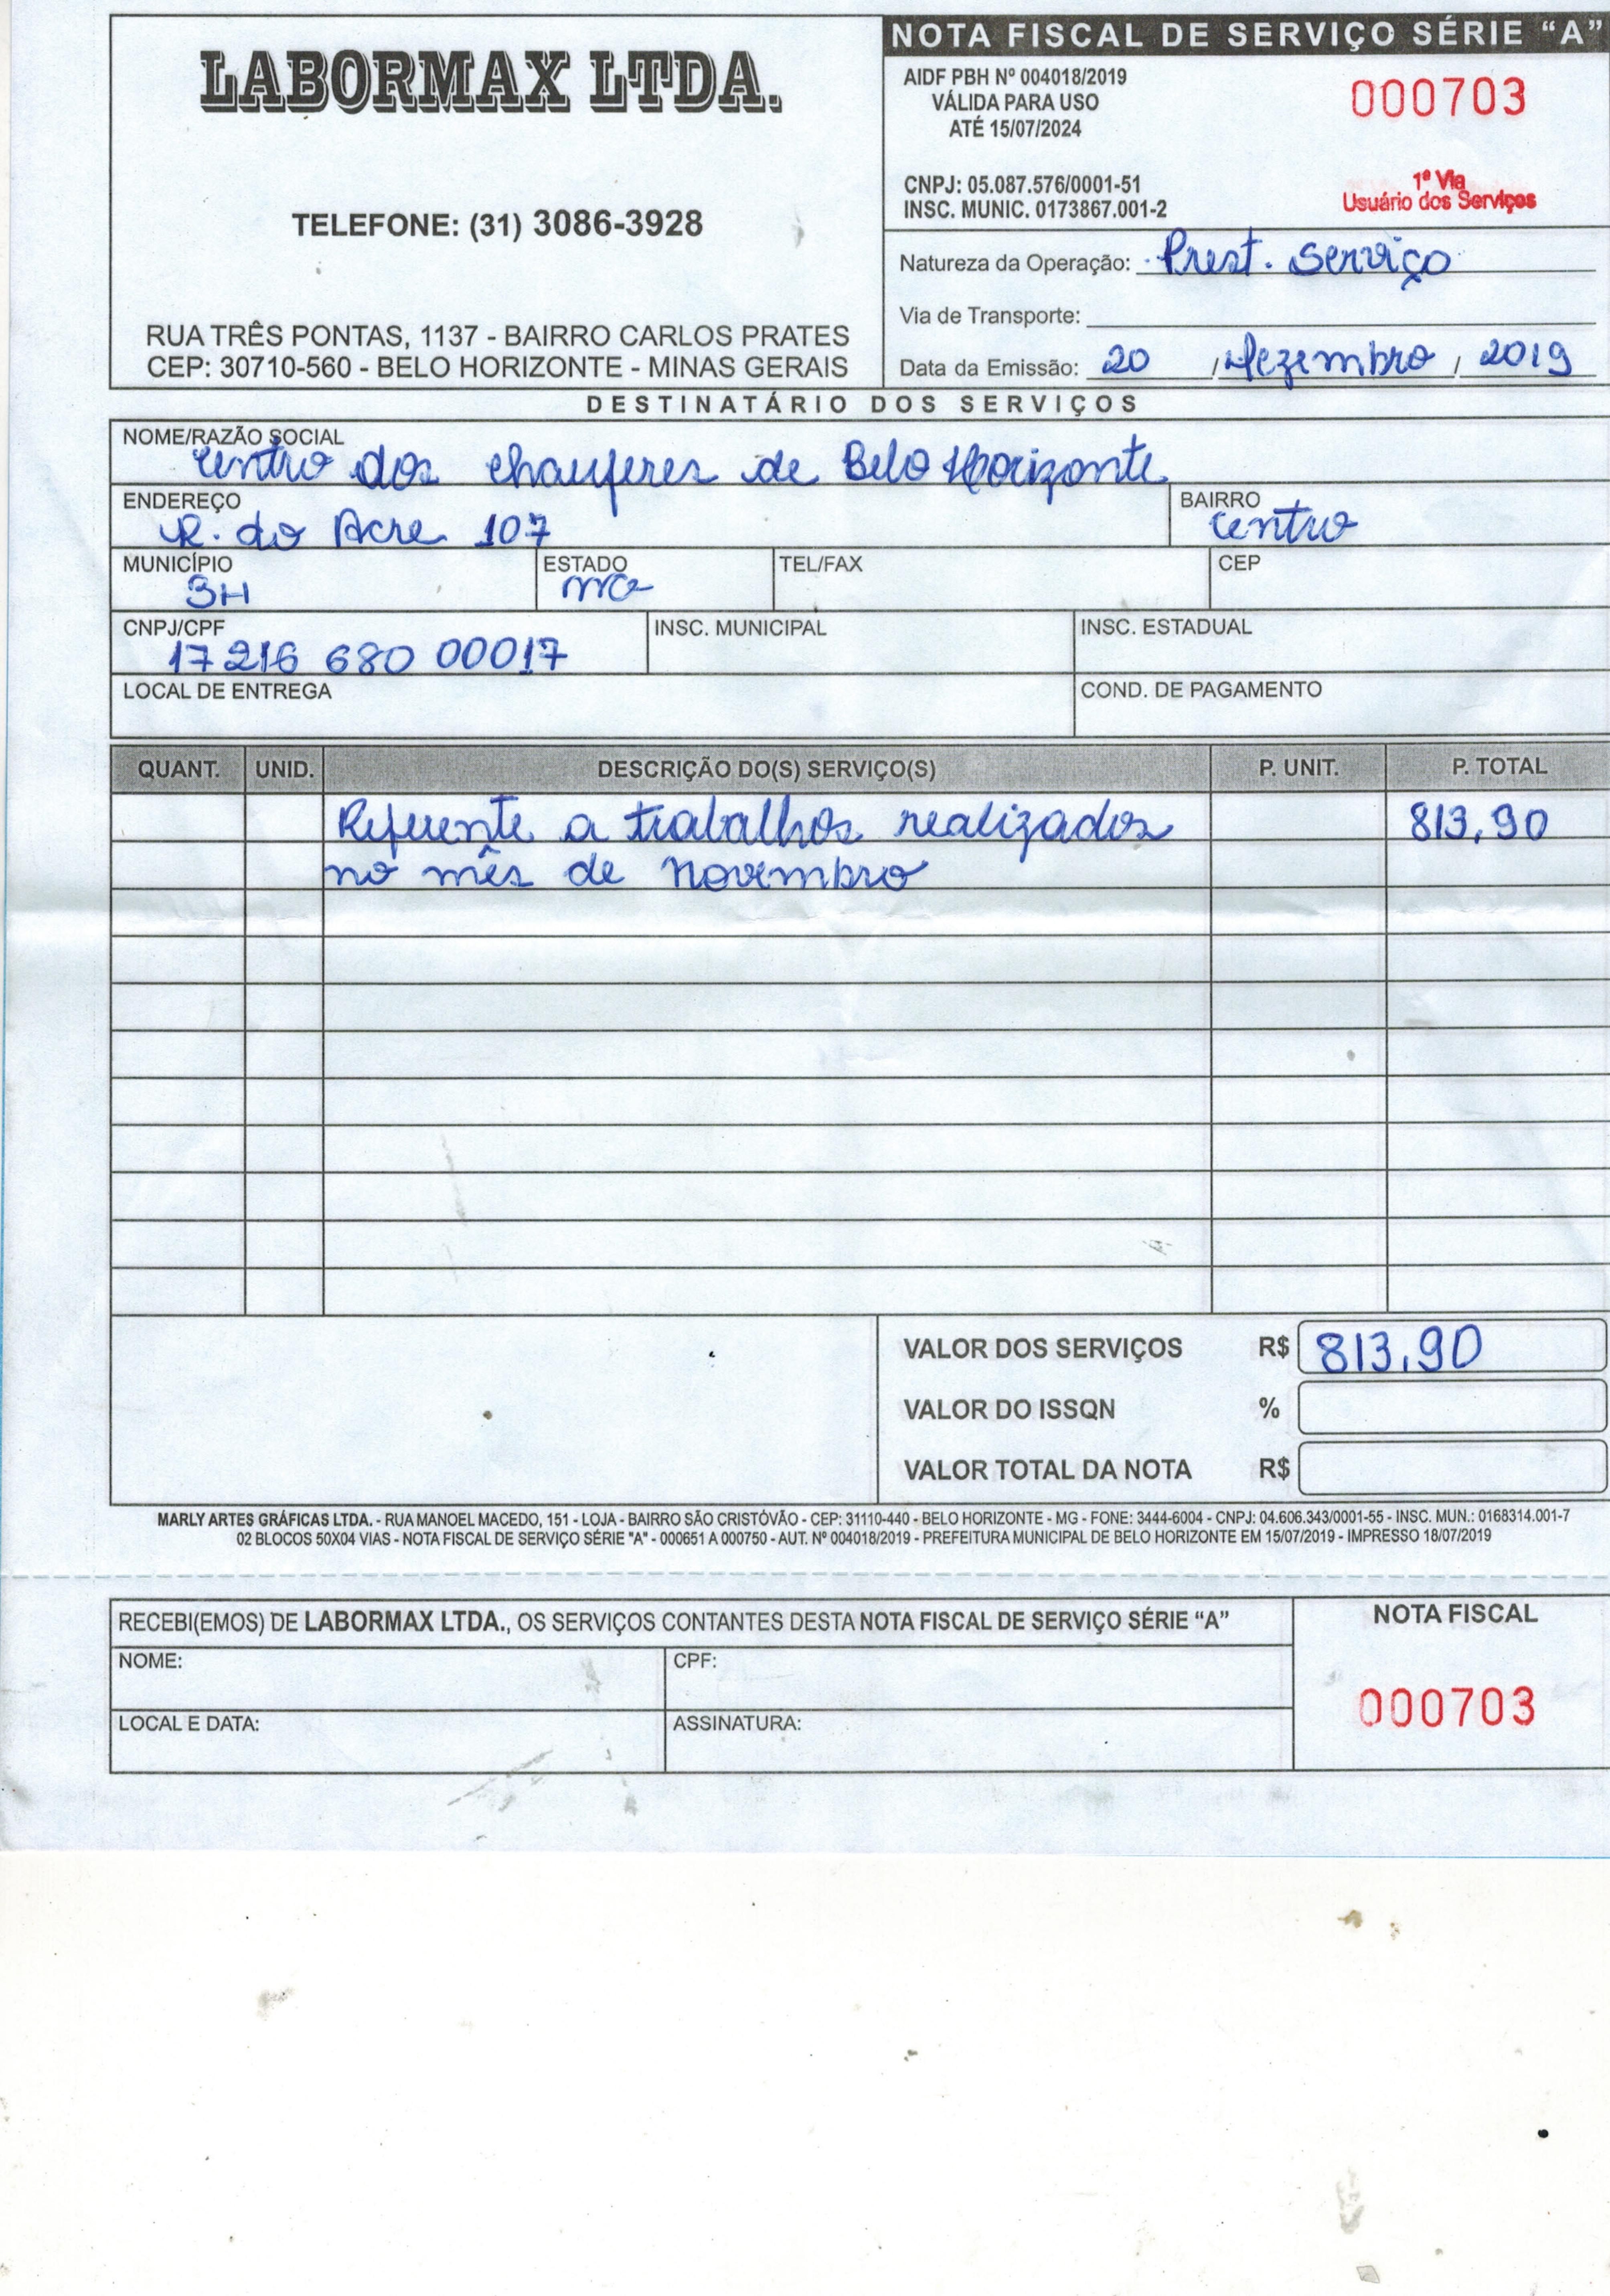 LABORMAX LTDA.
TELEFONE: (31) 3086-3928
RUA TRÊS PONTAS, 1137 - BAIRRO CARLOS PRATES
CEP: 30710-560 - BELO HORIZONTE - MINAS GERAIS
NOTA FISCAL DE SERVIÇO SÉRIE “A”
AIDF PBH Nº 004018/2019
VÁLIDA PARA USO
ATÉ 15/07/2024
000703
CNPJ: 05.087.576/0001-51
INSC. MUNIC. 0173867.001-2
1ª Via
Usuário dos Serviços
Natureza da Operação: Prest. Serviço
Via de Transporte:
Data da Emissão: 20 / Dezembro / 2019
DESTINATÁRIO DOS SERVIÇOS
NOME/RAZÃO SOCIAL
Centro dos chauferes de Belo Horizonte
ENDEREÇO BAIRRO
R. do Acre 107 Centro
MUNICÍPIO ESTADO TEL/FAX CEP
BH MG
CNPJ/CPF INSC. MUNICIPAL INSC. ESTADUAL
17 216 680 00017
LOCAL DE ENTREGA COND. DE PAGAMENTO
QUANT. UNID. DESCRIÇÃO DO(S) SERVIÇO(S) P. UNIT. P. TOTAL
Referente a trabalhos realizados 813,90
no mês de novembro
VALOR DOS SERVIÇOS R$ 813,90
VALOR DO ISSQN %
VALOR TOTAL DA NOTA R$
MARLY ARTES GRÁFICAS LTDA. - RUA MANOEL MACEDO, 151 - LOJA - BAIRRO SÃO CRISTÓVÃO - CEP: 31110-440 - BELO HORIZONTE - MG - FONE: 3444-6004 - CNPJ: 04.606.343/0001-55 - INSC. MUN.: 0168314.001-7
02 BLOCOS 50X04 VIAS - NOTA FISCAL DE SERVIÇO SÉRIE "A" - 000651 A 000750 - AUT. Nº 004018/2019 - PREFEITURA MUNICIPAL DE BELO HORIZONTE EM 15/07/2019 - IMPRESSO 18/07/2019
RECEBI(EMOS) DE LABORMAX LTDA., OS SERVIÇOS CONTANTES DESTA NOTA FISCAL DE SERVIÇO SÉRIE “A”
NOME: CPF:
LOCAL E DATA: ASSINATURA:
NOTA FISCAL
000703